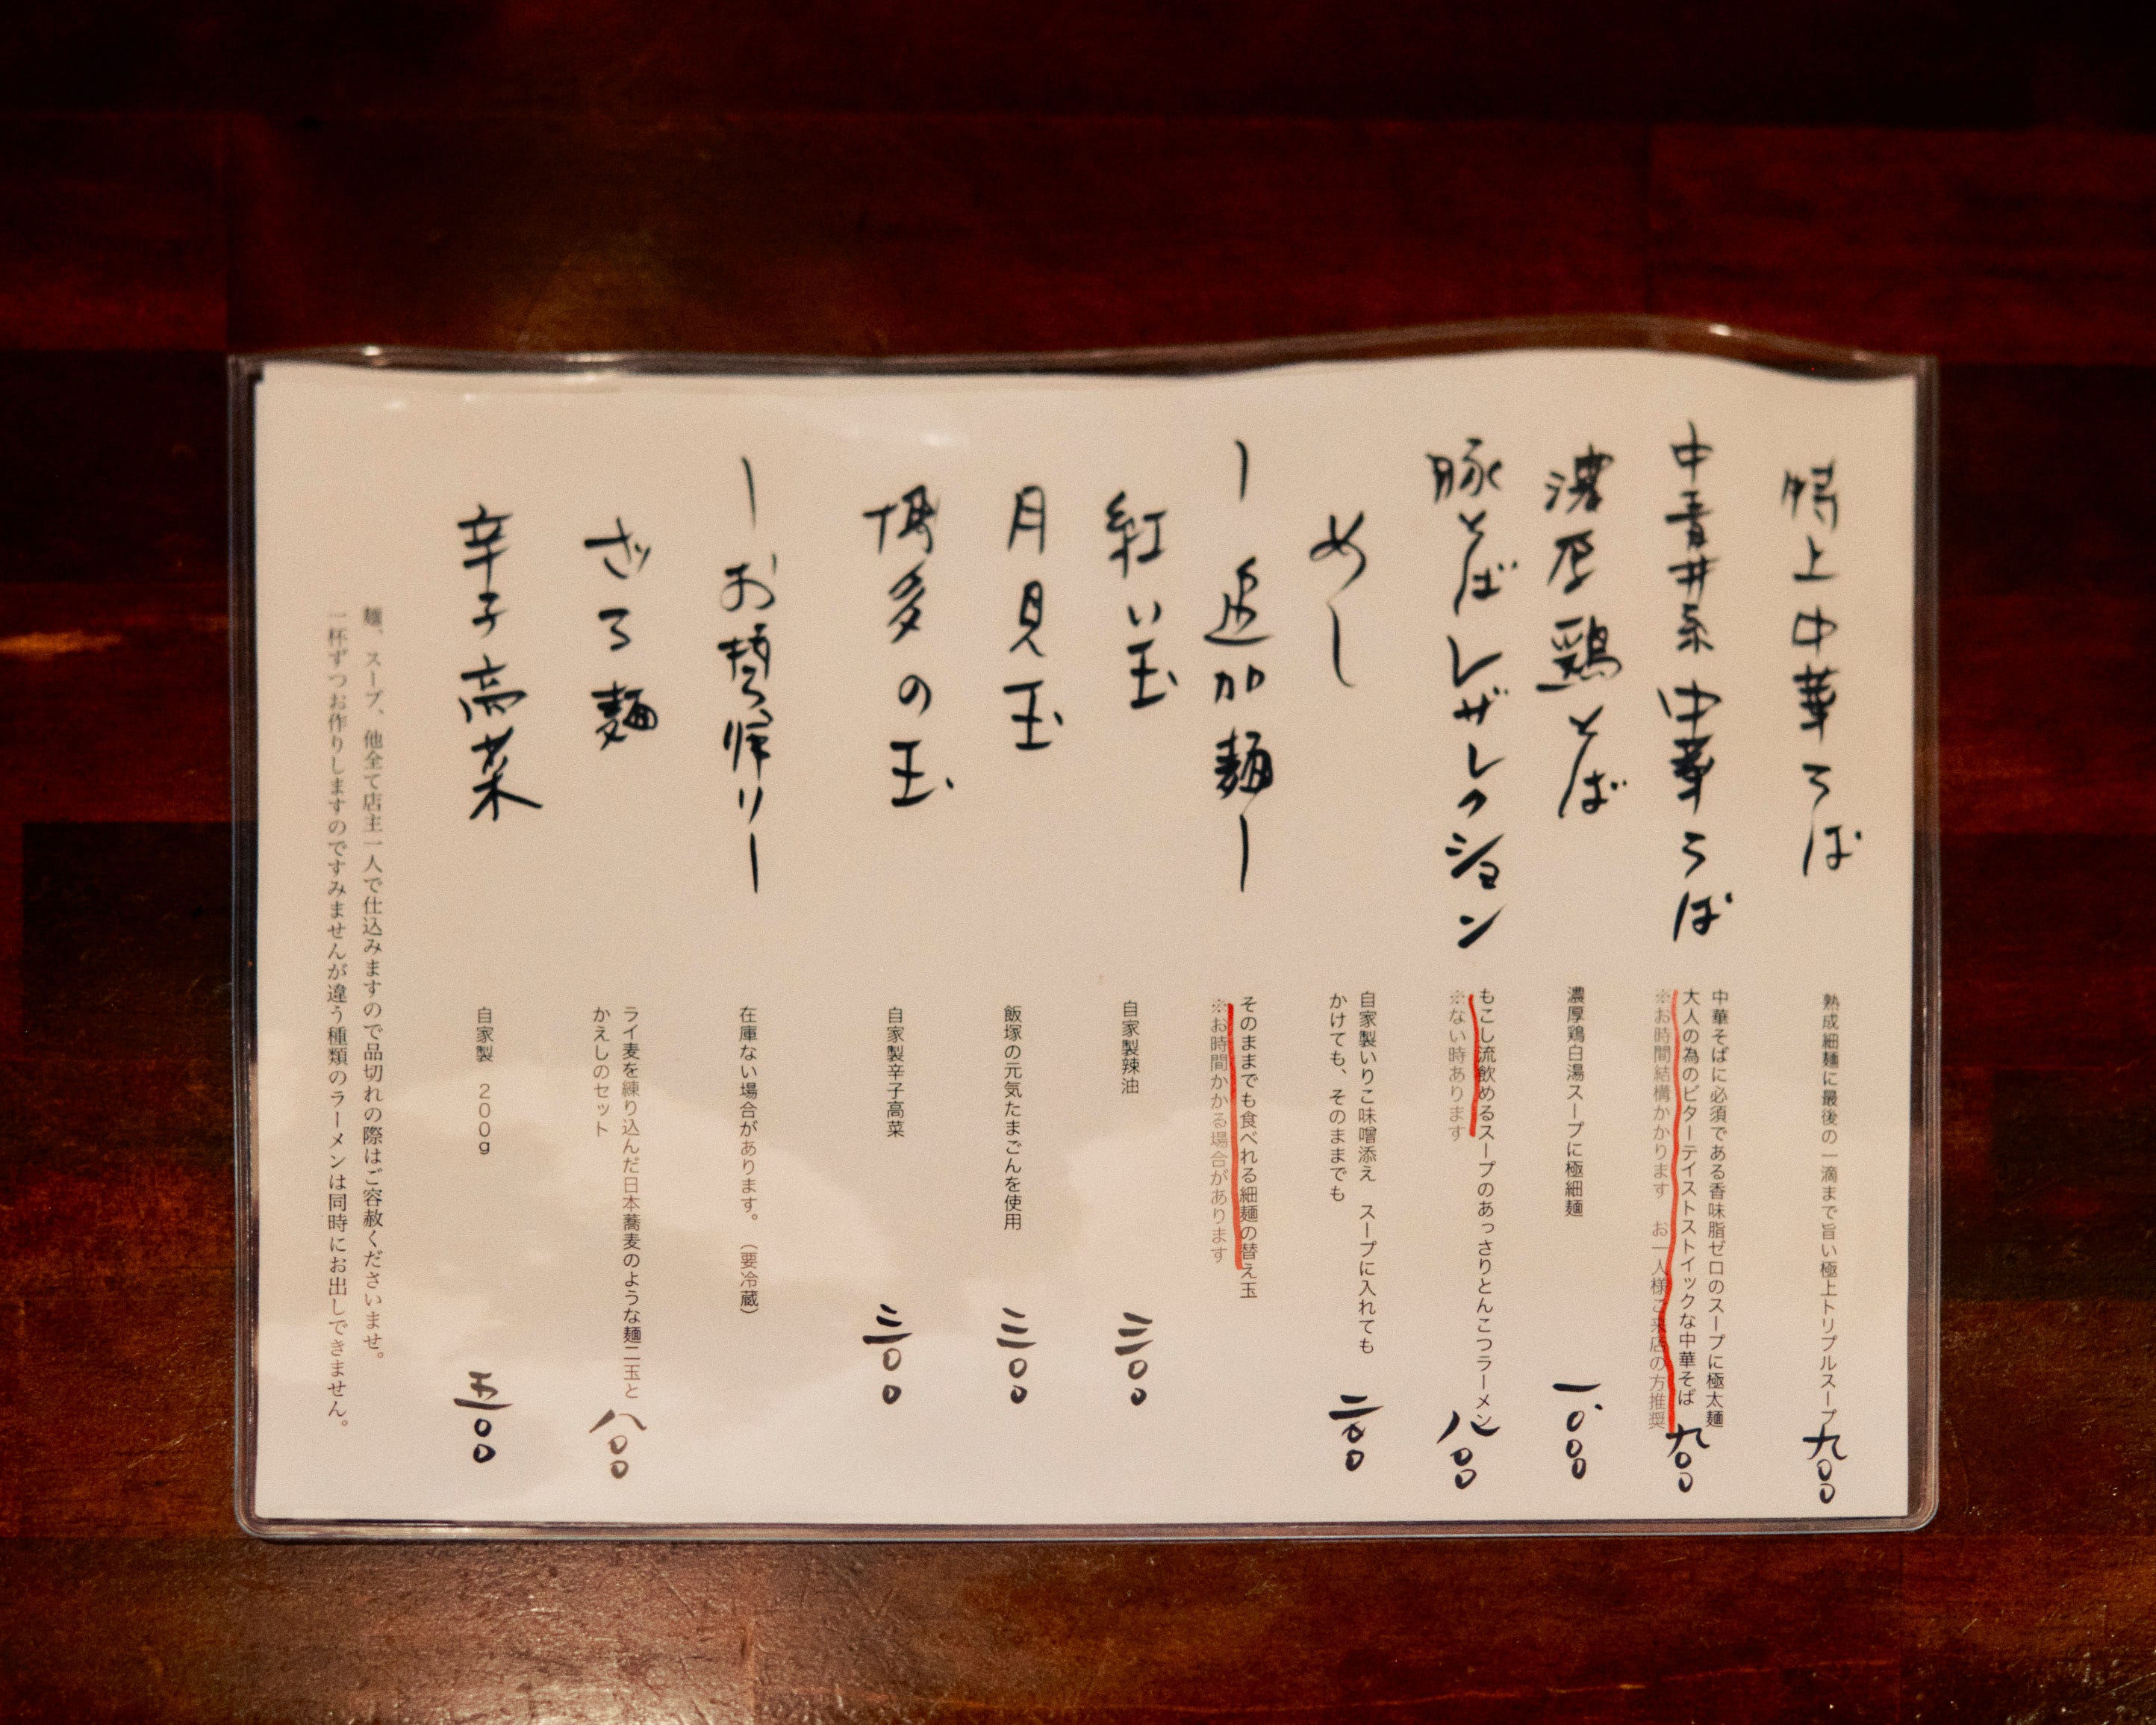 特上中華そば
熟成細麺に最後の一滴まで旨い極上トリプルスープ
九〇〇
中青井系中華そば
中華そばに必須である香味脂ゼロのスープに極太麺
大人の為のビターテイストストイックな中華そば
※お時間結構かかります お一人様ご来店の方推奨
九〇〇
濃厚鶏そば
濃厚鶏白湯スープに極細麺
一、〇〇〇
豚そばレザレクション
もこし流飲めるスープのあっさりとんこつラーメン
※ない時あります
八〇〇
めし
自家製いりこ味噌添え スープに入れても
かけても、そのままでも
二〇〇
ー追加麺ー
そのままでも食べれる細麺の替え玉
※お時間かかる場合があります
紅い玉
自家製辣油
三〇〇
月見玉
飯塚の元気たまごんを使用
三〇〇
博多の玉
自家製辛子高菜
三〇〇
ーお持ち帰りー
在庫ない場合があります。(要冷蔵)
ざる麺
ライ麦を練り込んだ日本蕎麦のような麺二玉と
かえしのセット
八〇〇
辛子高菜
自家製 200g
五〇〇
麺、スープ、他全て店主一人で仕込みますので品切れの際はご容赦くださいませ。
一杯ずつお作りしますのですみませんが違う種類のラーメンは同時にお出しできません。